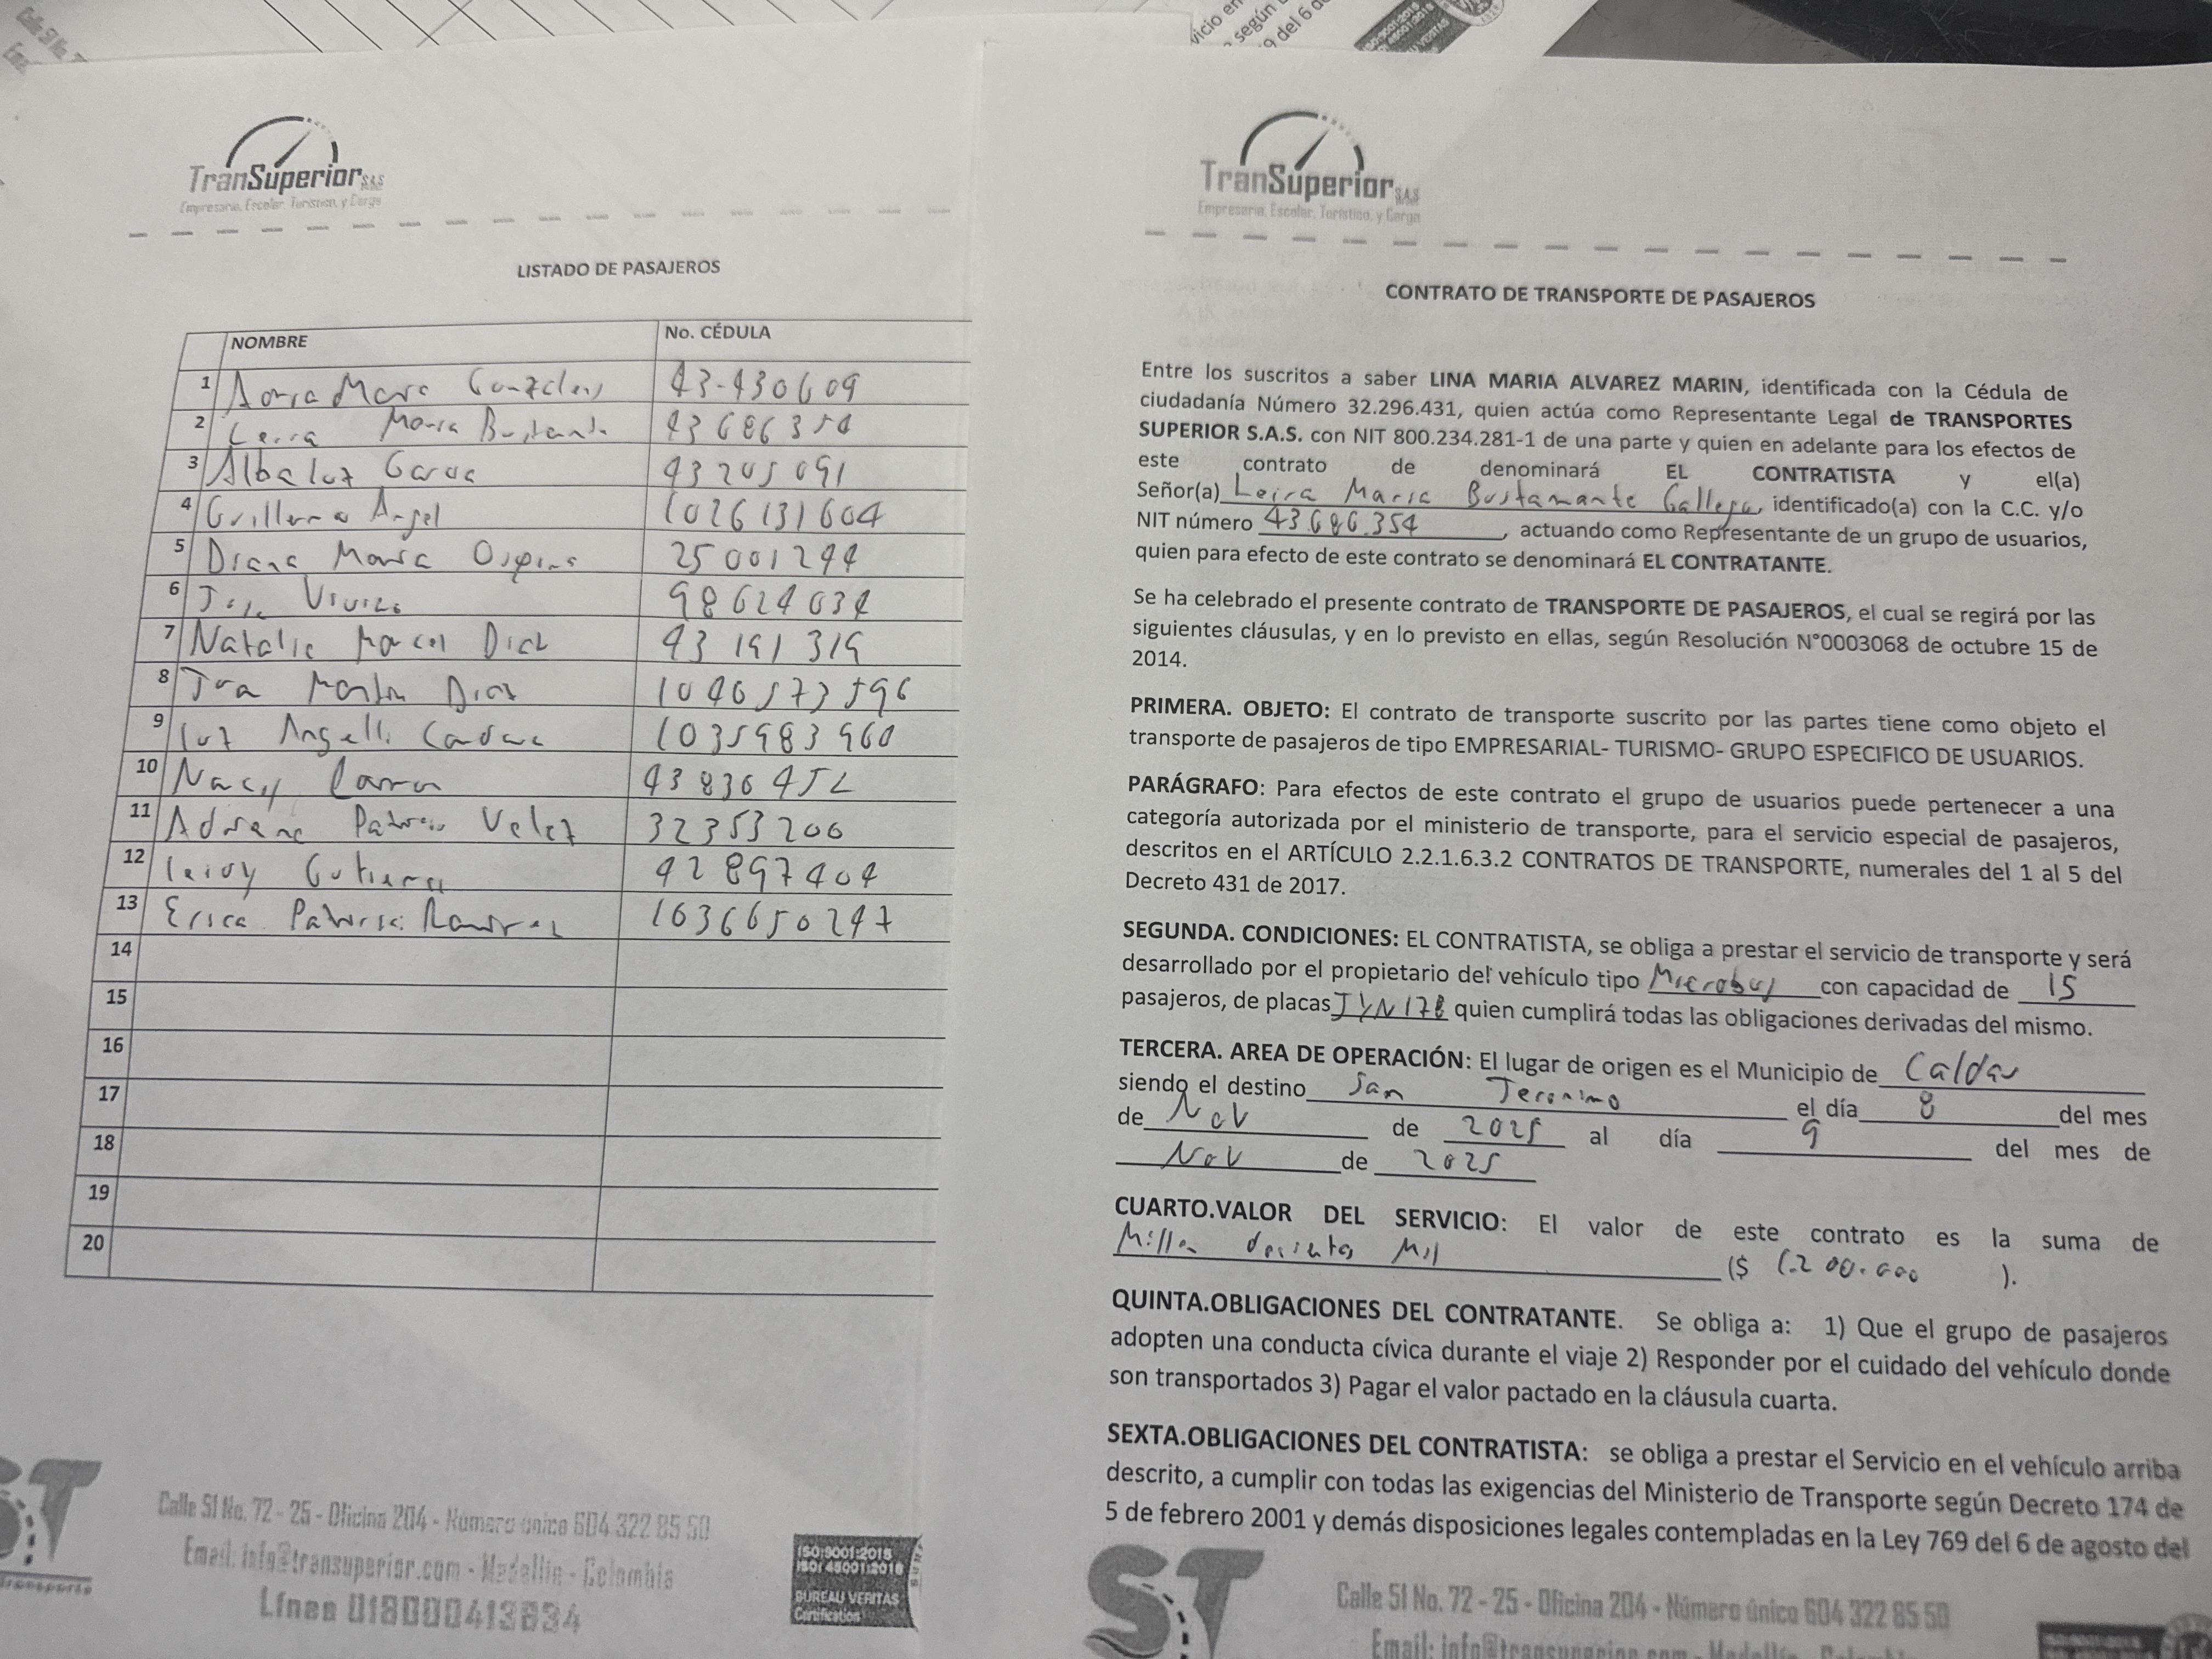 vicio en
según
9 del 6 de
TranSuperior S.A.S
Empresaria, Escolar, Turístico, y Carga
LISTADO DE PASAJEROS
NOMBRE No. CÉDULA
1 Maria Gonzalez 43-430609
2 Maria Bustamante 43686354
3 Alba luz Garcia 43205091
4 Guillermo Angel 1026131604
5 Diana Maria Ospina 25001244
6 98624034
7 Natalia Marcel Diaz 43 191 319
8 Diaz 1046573596
9 luz Angelli 1035983960
10 43836452
11 Adriana Patricia Velez 32353206
12 leidy Gutierrez 42897404
13 Erica Patricia Ramirez 1036650247
14
15
16
17
18
19
20
Calle 51 No. 72 - 25 - Oficina 204 - Número único 604 322 85 50
Email: info@transuperior.com - Medellín - Colombia
Línea 018000413834
ISO:9001:2015
ISO:45001:2018
BUREAU VERITAS
Certification
TranSuperior S.A.S
Empresaria, Escolar, Turístico, y Carga
CONTRATO DE TRANSPORTE DE PASAJEROS
Entre los suscritos a saber LINA MARIA ALVAREZ MARIN, identificada con la Cédula de
ciudadanía Número 32.296.431, quien actúa como Representante Legal de TRANSPORTES
SUPERIOR S.A.S. con NIT 800.234.281-1 de una parte y quien en adelante para los efectos de
este contrato de denominará EL CONTRATISTA y el(a)
Señor(a) Leira Maria Bustamante Gallego, identificado(a) con la C.C. y/o
NIT número 43.686.354, actuando como Representante de un grupo de usuarios,
quien para efecto de este contrato se denominará EL CONTRATANTE.
Se ha celebrado el presente contrato de TRANSPORTE DE PASAJEROS, el cual se regirá por las
siguientes cláusulas, y en lo previsto en ellas, según Resolución N°0003068 de octubre 15 de
2014.
PRIMERA. OBJETO: El contrato de transporte suscrito por las partes tiene como objeto el
transporte de pasajeros de tipo EMPRESARIAL- TURISMO- GRUPO ESPECIFICO DE USUARIOS.
PARÁGRAFO: Para efectos de este contrato el grupo de usuarios puede pertenecer a una
categoría autorizada por el ministerio de transporte, para el servicio especial de pasajeros,
descritos en el ARTÍCULO 2.2.1.6.3.2 CONTRATOS DE TRANSPORTE, numerales del 1 al 5 del
Decreto 431 de 2017.
SEGUNDA. CONDICIONES: EL CONTRATISTA, se obliga a prestar el servicio de transporte y será
desarrollado por el propietario del vehículo tipo Microbus con capacidad de 15
pasajeros, de placas JYN178 quien cumplirá todas las obligaciones derivadas del mismo.
TERCERA. AREA DE OPERACIÓN: El lugar de origen es el Municipio de Caldas
siendo el destino San Jeronimo el día 8 del mes
de Nov de 2025 al día 9 del mes de
Nov de 2025
CUARTO.VALOR DEL SERVICIO: El valor de este contrato es la suma de
Millon docientos Mil ($ 1.200.000 ).
QUINTA.OBLIGACIONES DEL CONTRATANTE. Se obliga a: 1) Que el grupo de pasajeros
adopten una conducta cívica durante el viaje 2) Responder por el cuidado del vehículo donde
son transportados 3) Pagar el valor pactado en la cláusula cuarta.
SEXTA.OBLIGACIONES DEL CONTRATISTA: se obliga a prestar el Servicio en el vehículo arriba
descrito, a cumplir con todas las exigencias del Ministerio de Transporte según Decreto 174 de
5 de febrero 2001 y demás disposiciones legales contempladas en la Ley 769 del 6 de agosto del
ST
Calle 51 No. 72 - 25 - Oficina 204 - Número único 604 322 85 50
Email: info@transuperior.com - Medellín - Colombia